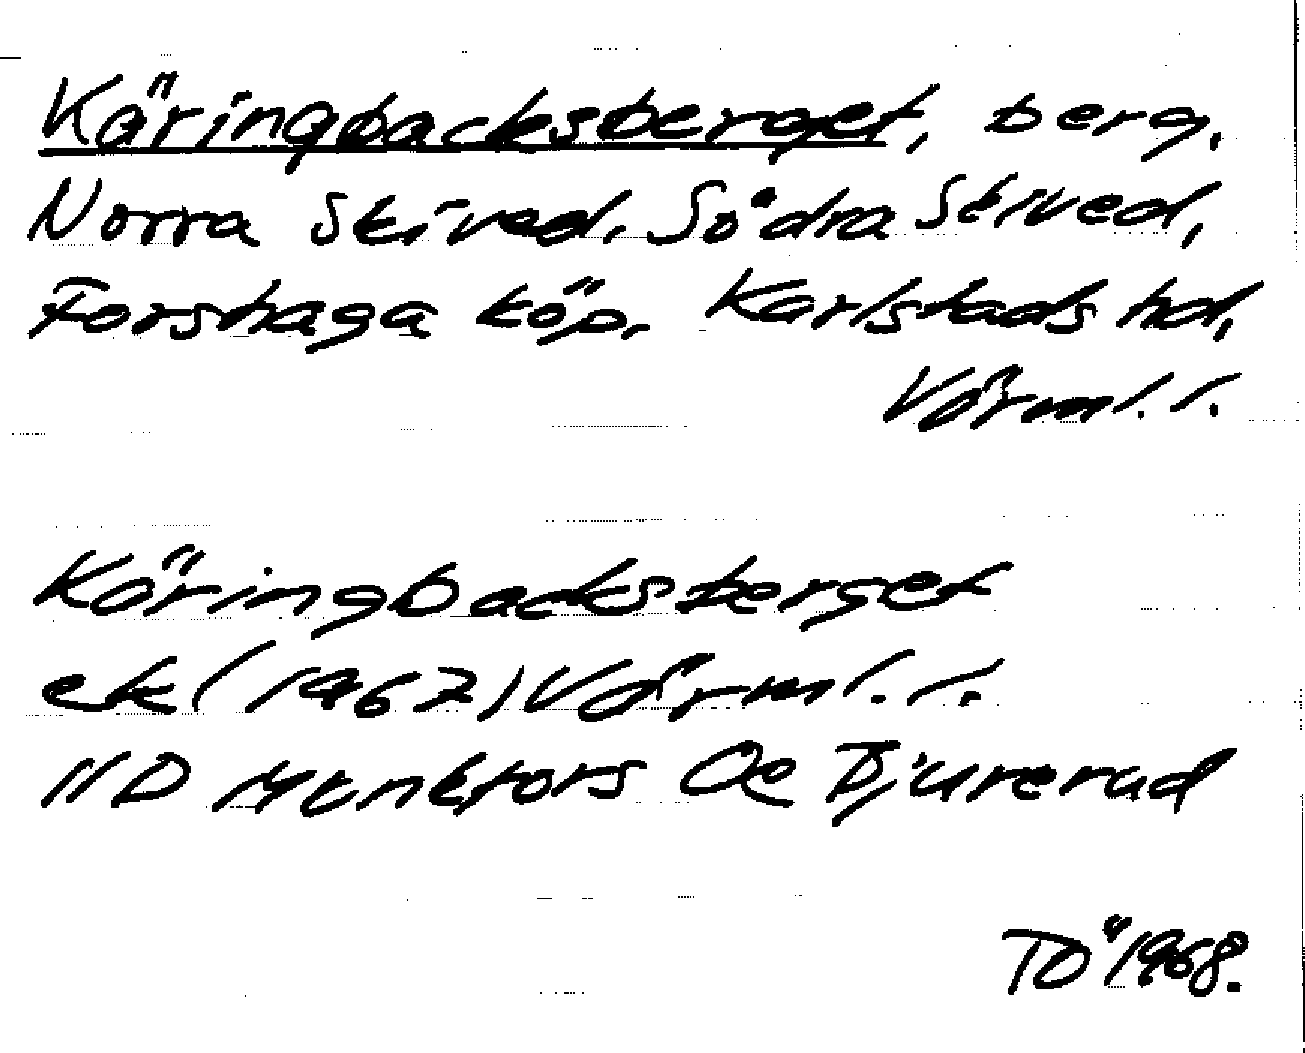 Käringbacksberget, berg.
Norra Skived, Södra Skived,
Forshaga köp. Karlstads hd,
Värml. l.
Käringbacksberget
ek (1967) Värml. l.
11D Munkfors Oe Djurerud
TÖ 1968.